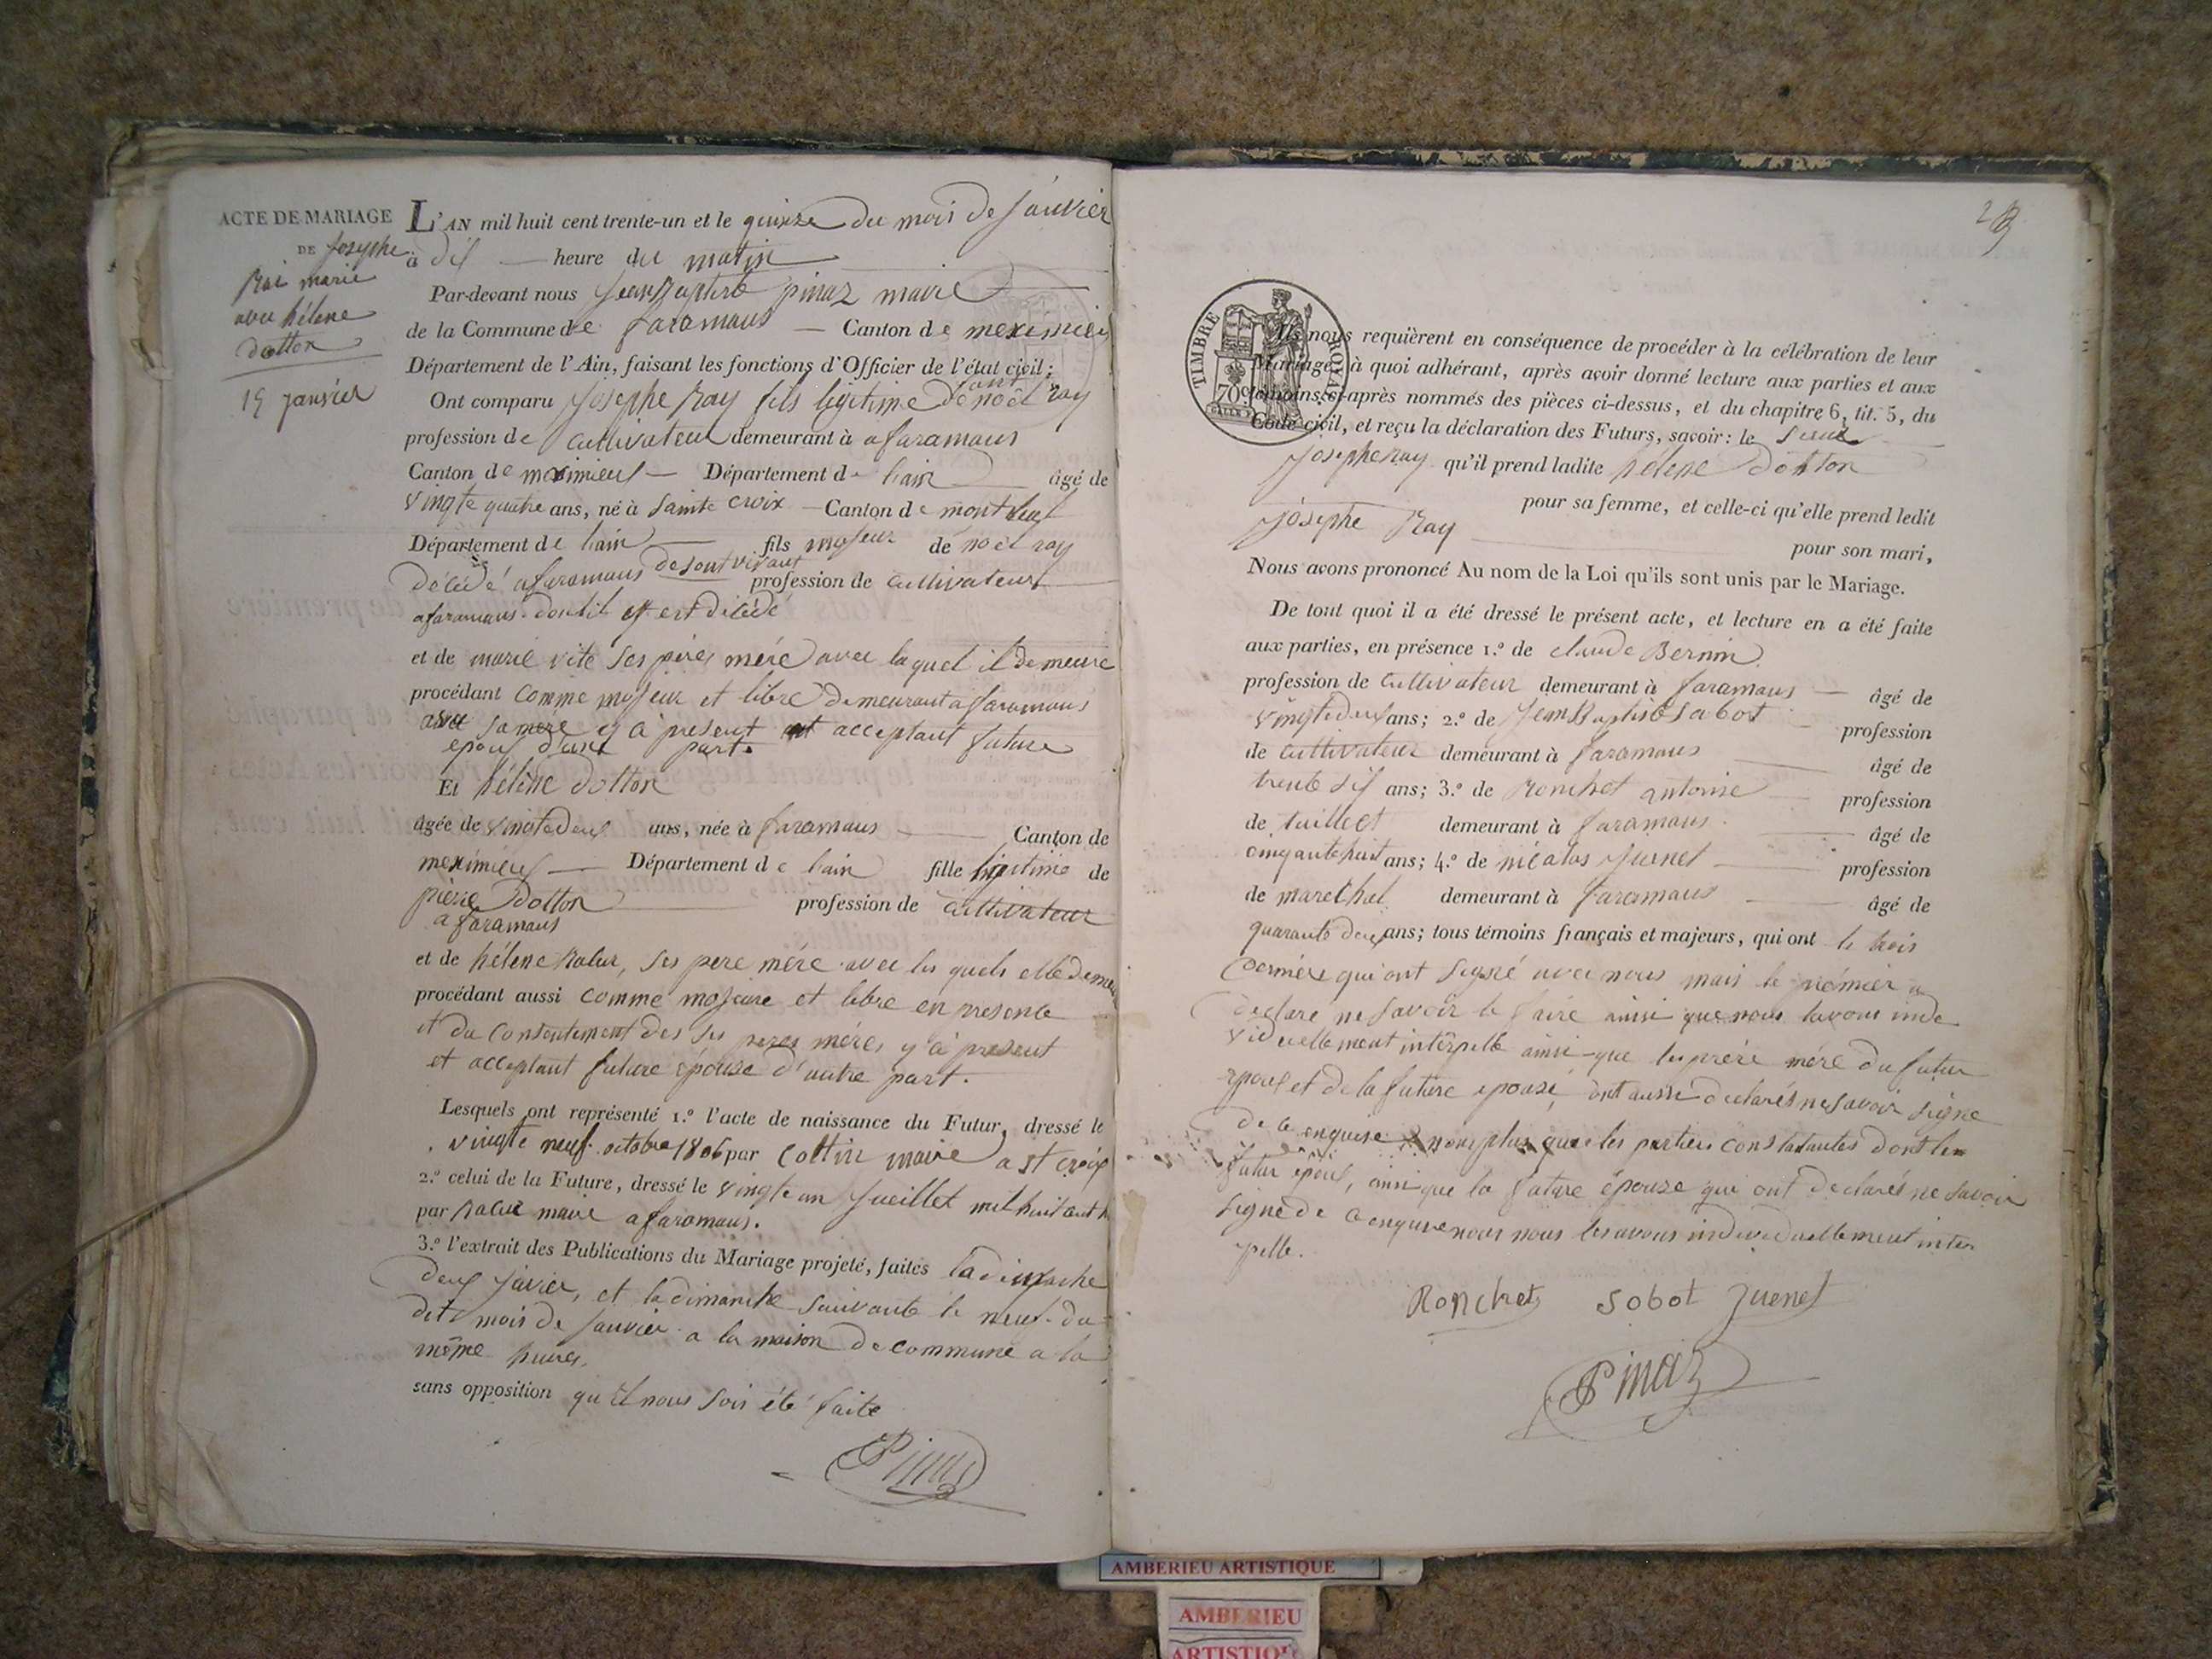 ACTE DE MARIAGE
DE Josephe
Rai marie
avec hélene
dotton
15 janvier
L'AN mil huit cent trente-un et le quinze du mois de janvier
à dix heure du matin
Par-devant nous Jean Baptiste pinaz maire
de la Commune de faramans Canton de meximieu
Département de l'Ain, faisant les fonctions d'Officier de l'état civil;
Ont comparu Josephe Ray fils légitime de noël ray
profession de Cultivateur demeurant à a faramans
Canton de meximieux Département de lain âgé de
vingte quatre ans, né à sainte croix Canton de montluel
Département de lain fils majeur de noël ray
décédé a faramans de sont vivant profession de cultivateur
a faramans dontil est décédé
et de marie vite ses père mére avec laquel il demeure
procédant comme majeur et libre demeurant a faramans
avec sa mere y à présent et acceptant future
epoux d'une part.
Et hélène dotton
âgée de vingtedeux ans, née à faramans Canton de
meximieux Département de lain fille légitime de
pierre Dotton profession de cultivateur
a faramans
et de hélene Ralur, ses pere mére avec les quels elle demeu
procédant aussi comme majeure et libre en presence
et du consentement des ses peres méres y à présent
et acceptant future épouse d'autre part.
Lesquels ont représenté 1.º l'acte de naissance du Futur, dressé le
vingte neuf octobre 1806 par Cottin maire a st croix
2.º celui de la Future, dressé le vingte un Jueillet mil huit cent h
par maire a faramans.
3.º l'extrait des Publications du Mariage projeté, faites la dimanche
deux javier, et la dimanche suivante le neuf du
dit mois de janvier a la maison de commune a la
même heures.
sans opposition qu'il nous sois été faite
Pinaz
TIMBRE ROYAL
70
Ils nous requièrent en conséquence de procéder à la célébration de leur
Mariage, à quoi adhérant, après avoir donné lecture aux parties et aux
témoins ci-après nommés des pièces ci-dessus, et du chapitre 6, tit. 5, du
Code civil, et reçu la déclaration des Futurs, savoir: le sieur
Josephe ray qu'il prend ladite hélene dotton
pour sa femme, et celle-ci qu'elle prend ledit
Josephe Ray pour son mari,
Nous avons prononcé Au nom de la Loi qu'ils sont unis par le Mariage.
De tout quoi il a été dressé le présent acte, et lecture en a été faite
aux parties, en présence 1.º de claude Bernin
profession de Cultivateur demeurant à faramans âgé de
vingtedeux ans; 2.º de Jean Baptiste Sabot profession
de cultivateur demeurant à faramans âgé de
trente six ans; 3.º de Ronchet antoine profession
de taillet demeurant à faramans âgé de
cinquantehuit ans; 4.º de nicolas Juenet profession
de marechal demeurant à faramans âgé de
quarante deux ans; tous témoins français et majeurs, qui ont le trois
dernière qui ont signé avec nous mais le prémier a
declaré ne savoir le faire ainsi que nous lavons inde
viduellement intérpellé ainsi que les mére du futur
epoux et de la future epouse, ont aussi declarés ne savoir signe
de ce enquise nomplus que les parties constatautes dont le
futur époux, ainsi que la future épouse qui ont declarés ne savoir
signe de ce enquise nous les avons individuellement inter
pelle.
Ronchet Sobot Juenet
Pinaz
AMBERIEU ARTISTIQUE
AMBERIEU
ARTISTIQUE